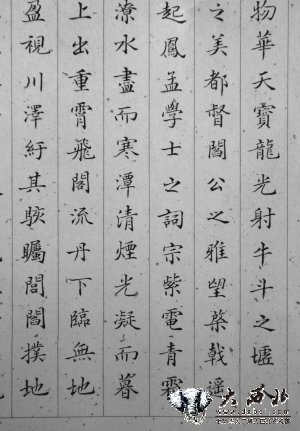 物華天寶龍光射牛斗之墟
之美都督閻公之雅望棨戟遥
起鳳孟學士之詞宗紫電青霜
潦水盡而寒潭清煙光凝而暮
上出重霄飛閣流丹下臨無地
盈視川澤紆其駭矚閭閻撲地
大西北